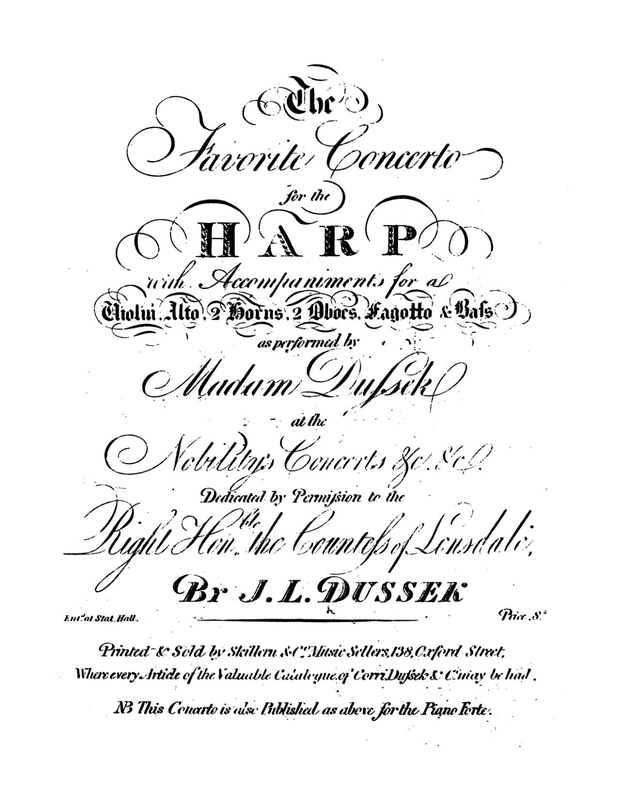 The
Favorite Concerto
for the
HARP
with Accompaniments for a
Violin, Alto, 2 Horns, 2 Oboes, Fagotto & Baſs
as performed by
Madam Duſsek
at the
Nobility's Concerts &c. &c.
Dedicated by Permiſsion to the
Right Hon.ble the Counteſs of Lonsdale,
By J. L. DUSSEK
Ent.d at Stat. Hall. Price 8.s
Printed & Sold by Skillern & Co. Music Sellers, 138, Oxford Street,
Where every Article of the Valuable Catalogue of Corri Duſsek & Co. may be had.
NB This Concerto is also Published as above for the Piano Forte.